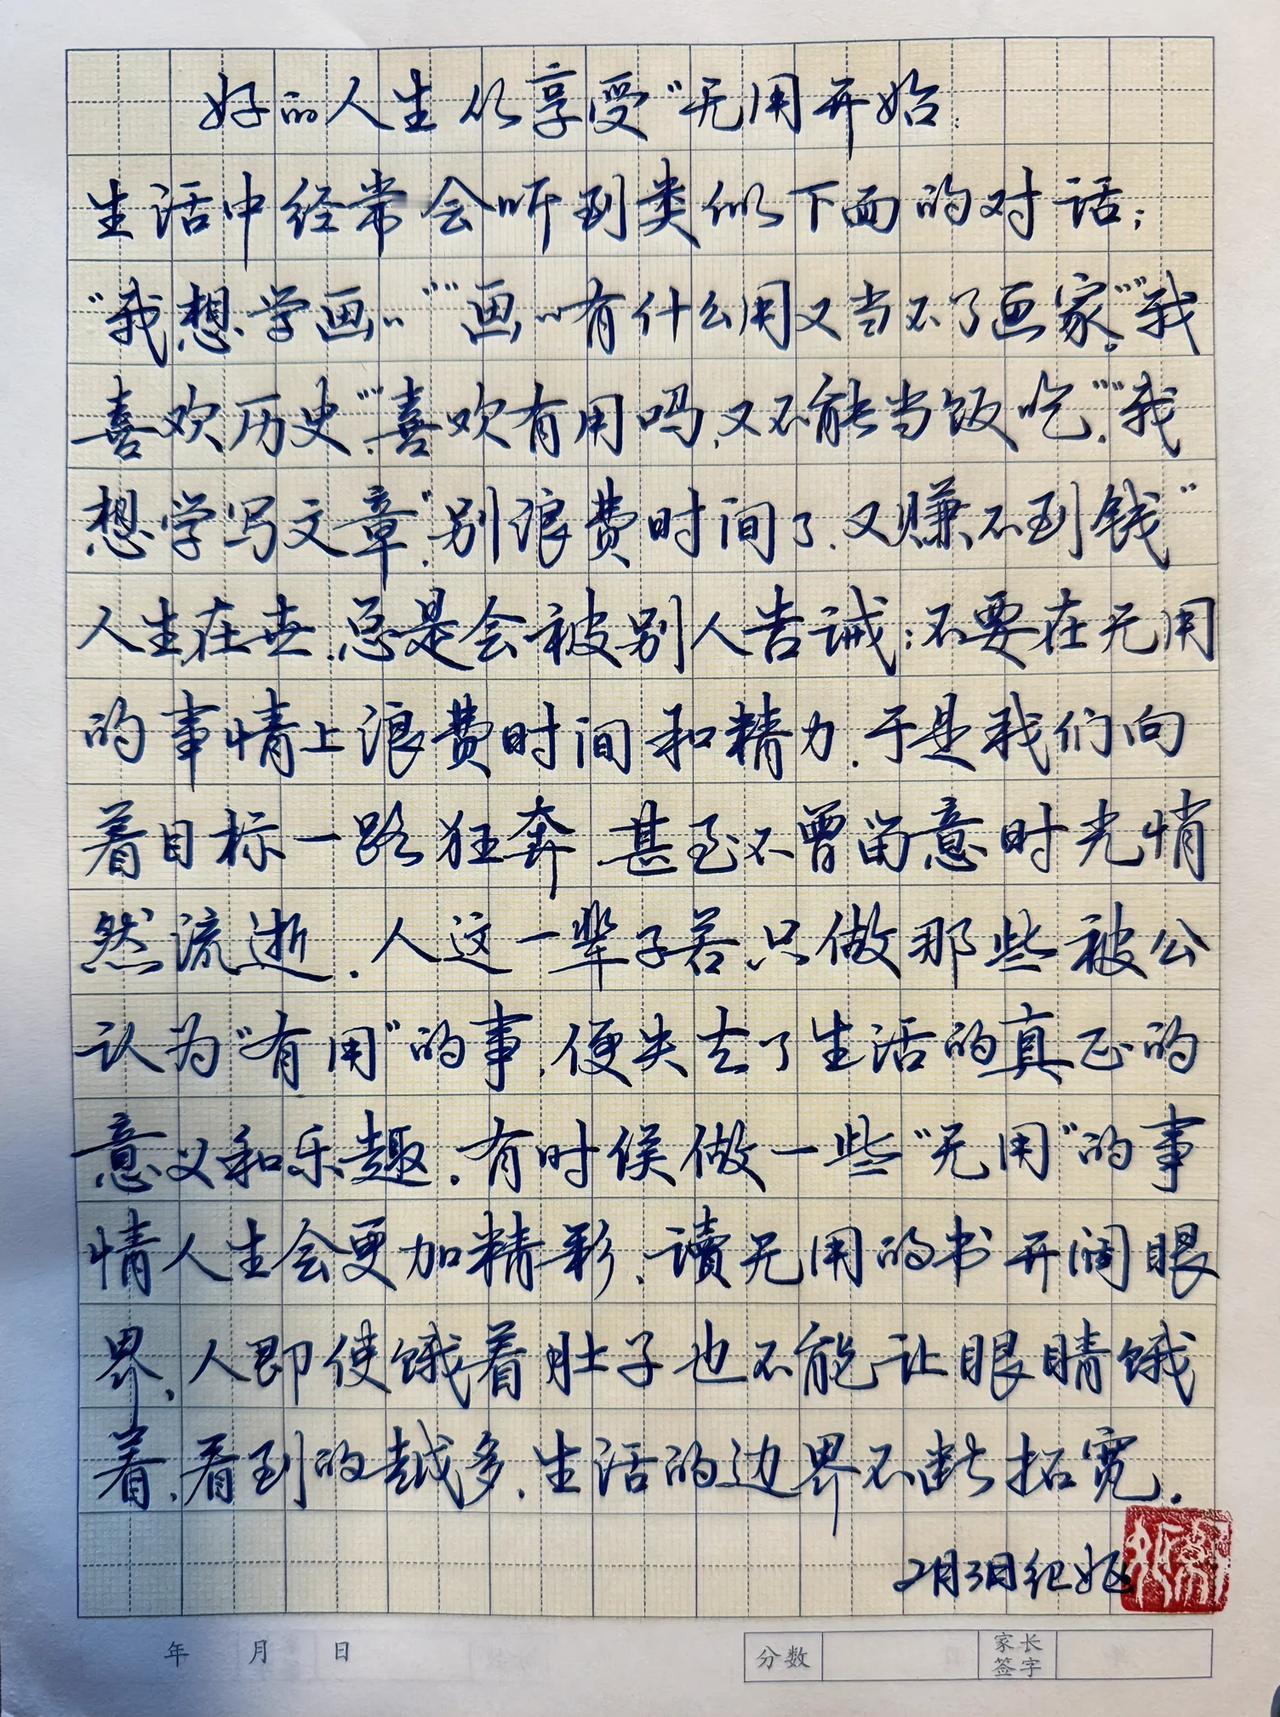 好的人生从享受“无用开始：
生活中经常会听到类似下面的对话；
“我想学画”“画”有什么用又当不了画家。”“我
喜欢历史”“喜欢有用吗，又不能当饭吃”“我
想学写文章”“别浪费时间了，又赚不到钱”
人生在世，总是会被别人告诫：不要在无用
的事情上浪费时间和精力，于是我们向
着目标一路狂奔 甚至不曾留意时光悄
然流逝．人这一辈子若只做那些被公
认为“有用”的事，便失去了生活的真正的
意义和乐趣．有时候做一些“无用”的事
情人生会更加精彩，读无用的书开阔眼
界，人即使饿着肚子也不能让眼睛饿
着，看到的越多，生活的边界不断拓宽．
2月3日纪
年 月 日
分数
家长
签字